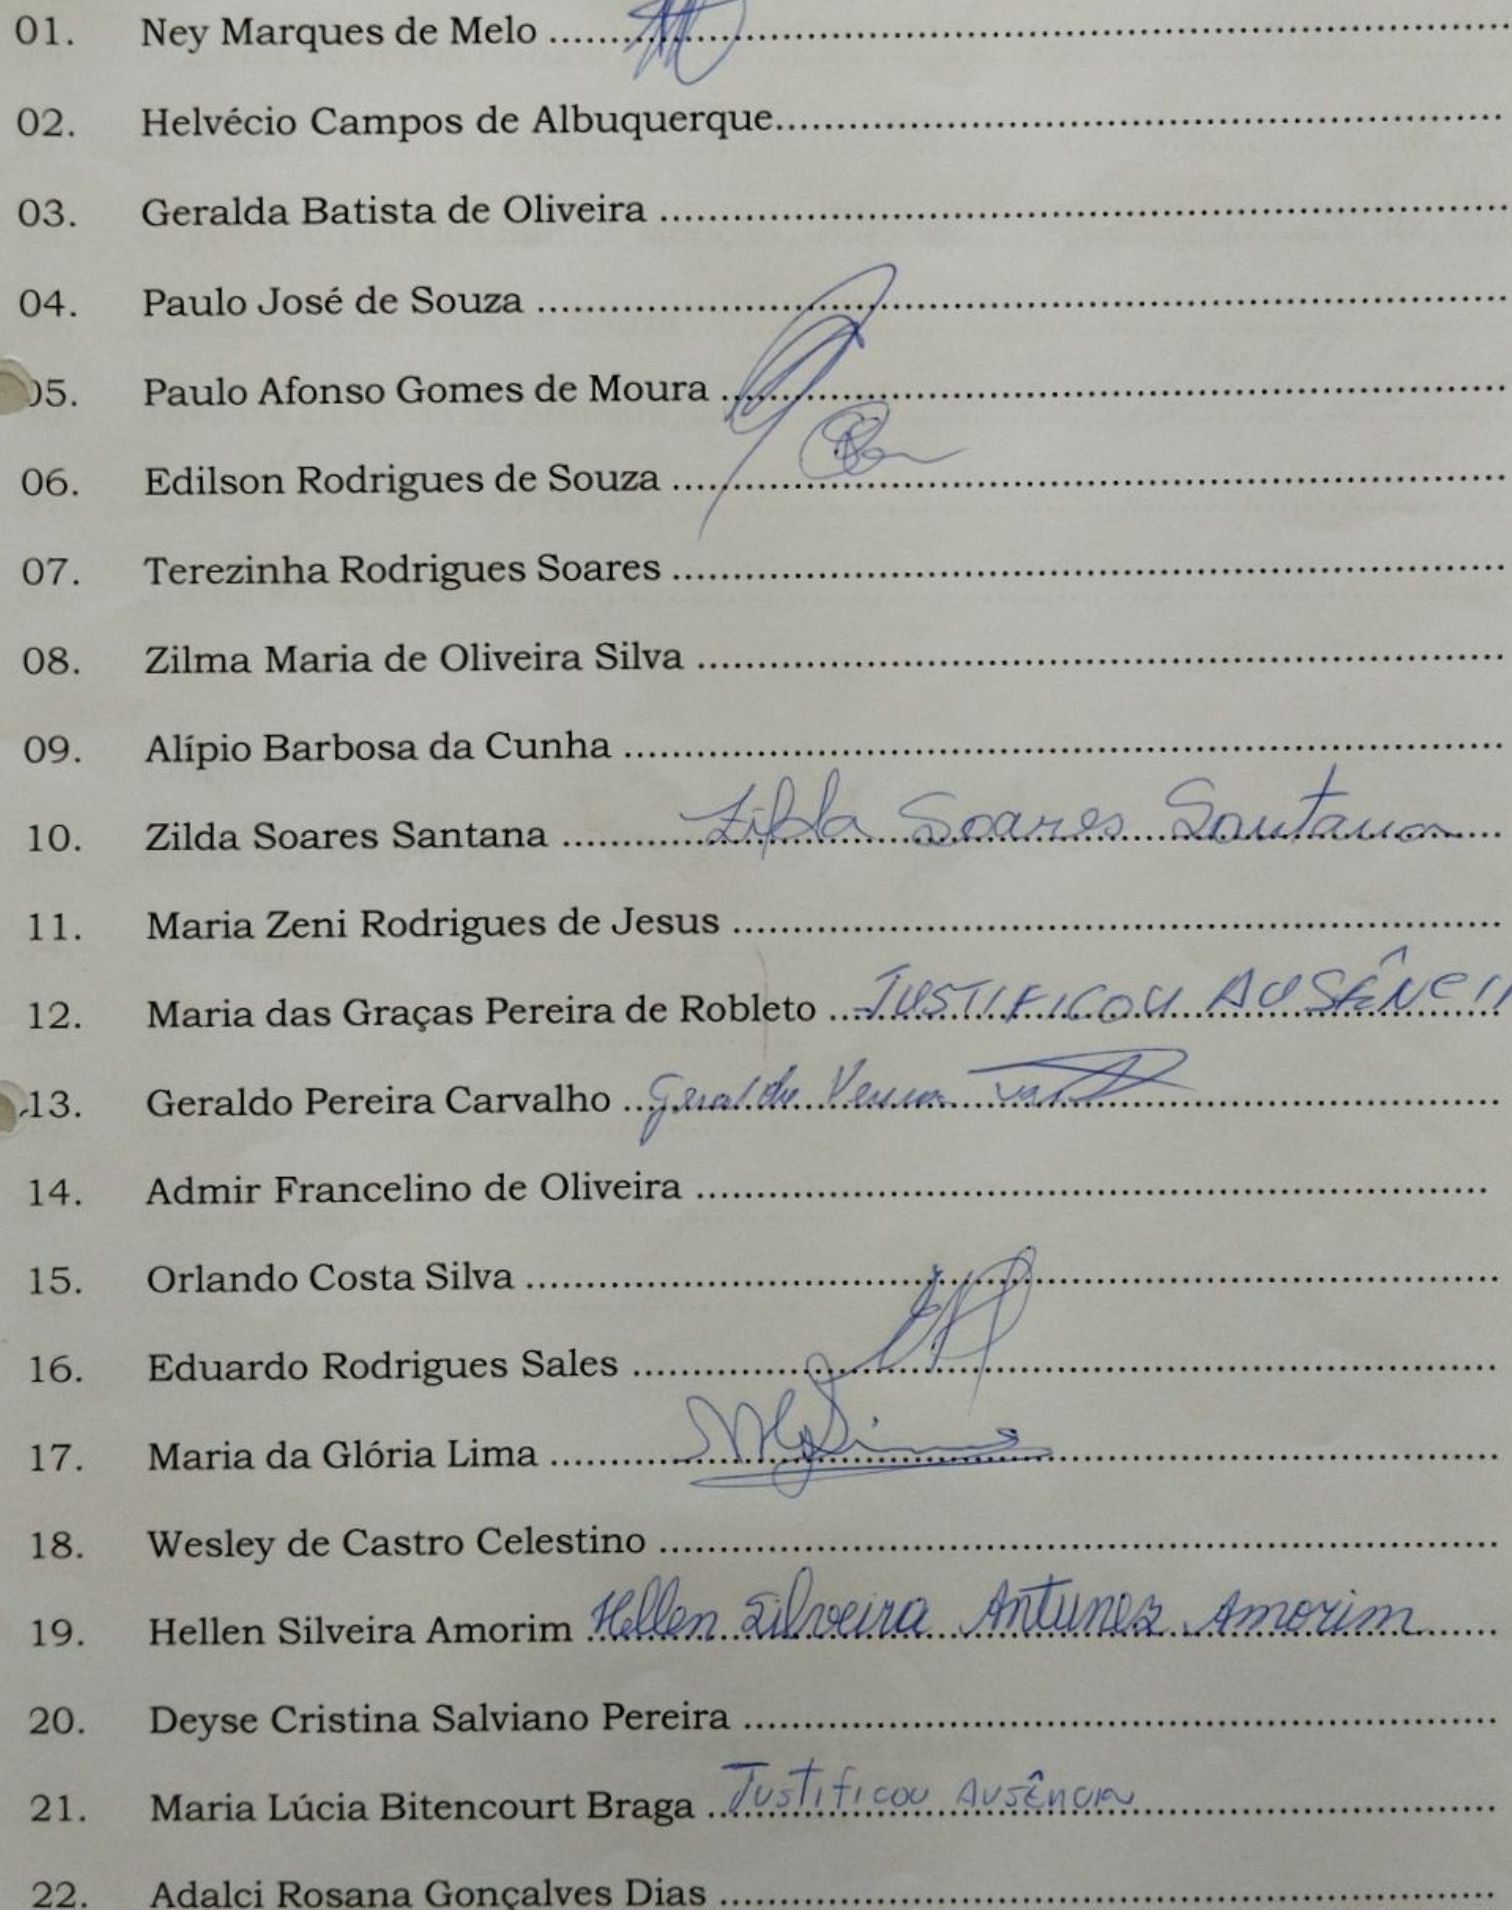 01. Ney Marques de Melo ..........
02. Helvécio Campos de Albuquerque..........
03. Geralda Batista de Oliveira ..........
04. Paulo José de Souza ..........
05. Paulo Afonso Gomes de Moura ..........
06. Edilson Rodrigues de Souza ..........
07. Terezinha Rodrigues Soares ..........
08. Zilma Maria de Oliveira Silva ..........
09. Alípio Barbosa da Cunha ..........
10. Zilda Soares Santana .......... Zilda Soares Santana
11. Maria Zeni Rodrigues de Jesus ..........
12. Maria das Graças Pereira de Robleto .......... JUSTIFICOU AUSÊNCI
13. Geraldo Pereira Carvalho ..........
14. Admir Francelino de Oliveira ..........
15. Orlando Costa Silva ..........
16. Eduardo Rodrigues Sales ..........
17. Maria da Glória Lima ..........
18. Wesley de Castro Celestino ..........
19. Hellen Silveira Amorim .......... Hellen Silveira Antunes Amorim
20. Deyse Cristina Salviano Pereira ..........
21. Maria Lúcia Bitencourt Braga .......... Justificou Ausência
22. Adalci Rosana Gonçalves Dias ..........